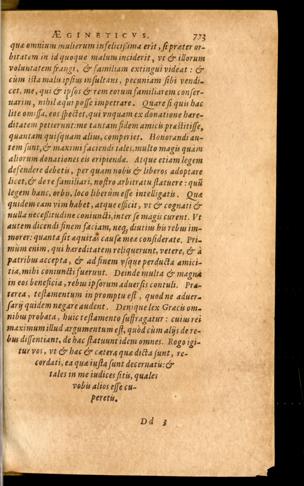 ÆGINETICVS. 773
quæ omnium mulierum infelicissima erit, si præter or-
bitatem in id quoque malum inciderit, vt & illorum
voluntatem frangi, & familiam extingui videat: &
cùm ista malis ipsius insultans, pecuniam sibi vendi-
cet, me, qui & ipsos & rem eorum familiarem conser-
uarim, nihil æqui posse impetrare. Quare si quis hac
lite omissa, eos spectet, qui vnquam ex donatione hære-
ditatem petierunt: me tantam fidem amicis præstitisse,
quantam quisquam alius, comperiet. Honorandi au-
tem sunt, & maximi faciendi tales, multo magis quàm
aliorum donationes eis eripiendæ. Atque etiam legem
defendere debetis, per quam nobis & liberos adoptare
licet, & de re familiari, nostro arbitratu statuere: quū
legem hanc, orbo, loco liberûm esse intelligatis. Quæ
quidem tam vim habet, atque efficit, vt & cognati &
nulla necessitudine coniuncti, inter se magis curent. Vt
autem dicendi finem faciam, neq; diutius his rebus im-
morer: quanta sit æquitas causæ meæ considerate. Pri-
mùm enim, qui hæreditatem reliquerunt, vetere, & à
patribus accepta, & ad finem vsque perducta amici-
tia, mihi coniuncti fuerunt. Deinde multa & magna
in eos beneficia, rebus ipsorum aduersis contuli. Præ-
terea, testamentum in promptu est, quod ne aduer-
sarij quidem negare audent. Denique lex Græcis om-
nibus probata, huic testamento suffragatur: cuius rei
maximum illud argumentum est, quòd cùm alijs de re-
bus dissentiant, de hac statuunt idem omnes. Rogo igi-
tur vos, vt & hæc & cætera quæ dicta sunt, re-
cordati, ea quæ iusta sunt decernatis: &
tales in me iudices sitis, quales
vobis alios esse cu-
peretis.
Dd 3